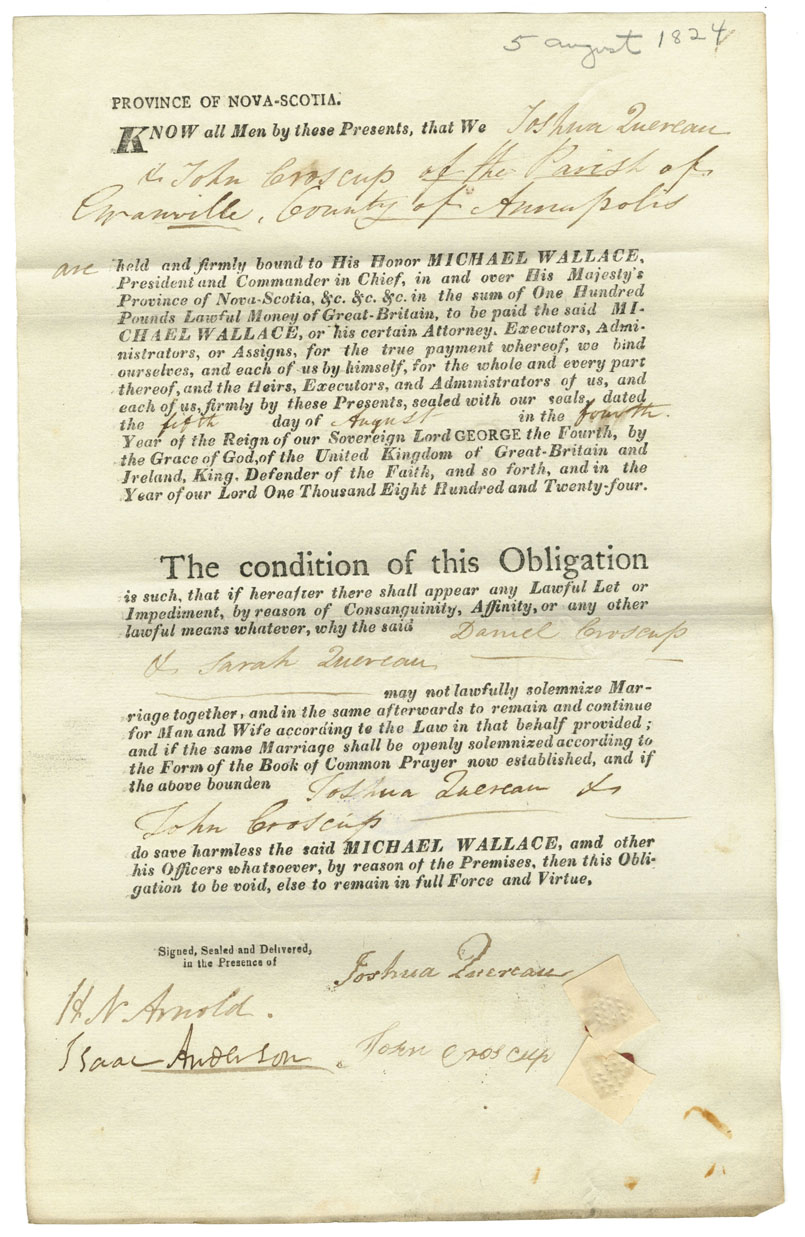 5 august 1824
PROVINCE OF NOVA-SCOTIA.
KNOW all Men by these Presents, that We Joshua Quereau
& John Croscup of the Parish of
Granville, County of Annapolis
are held and firmly bound to His Honor MICHAEL WALLACE,
President and Commander in Chief, in and over His Majesty's
Province of Nova-Scotia, &c. &c. &c. in the sum of One Hundred
Pounds Lawful Money of Great-Britain, to be paid the said MI-
CHAEL WALLACE, or his certain Attorney, Executors, Admi-
nistrators, or Assigns, for the true payment whereof, we bind
ourselves, and each of us by himself, for the whole and every part
thereof, and the Heirs, Executors, and Administrators of us, and
each of us, firmly by these Presents, sealed with our seals, dated
the fifth day of August in the fourth.
Year of the Reign of our Sovereign Lord GEORGE the Fourth, by
the Grace of God, of the United Kingdom of Great-Britain and
Ireland, King, Defender of the Faith, and so forth, and in the
Year of our Lord One Thousand Eight Hundred and Twenty-four.
The condition of this Obligation
is such, that if hereafter there shall appear any Lawful Let or
Impediment, by reason of Consanguinity, Affinity, or any other
lawful means whatever, why the said Daniel Croscup
& Sarah Quereau
may not lawfully solemnize Mar-
riage together, and in the same afterwards to remain and continue
for Man and Wife according to the Law in that behalf provided;
and if the same Marriage shall be openly solemnized according to
the Form of the Book of Common Prayer now established, and if
the above bounden Joshua Quereau &
John Croscup
do save harmless the said MICHAEL WALLACE, amd other
his Officers whatsoever, by reason of the Premises, then this Obli-
gation to be void, else to remain in full Force and Virtue.
Signed, Sealed and Delivered,
in the Presence of
Joshua Quereau
H N Arnold.
Isaac Anderson
John Croscup